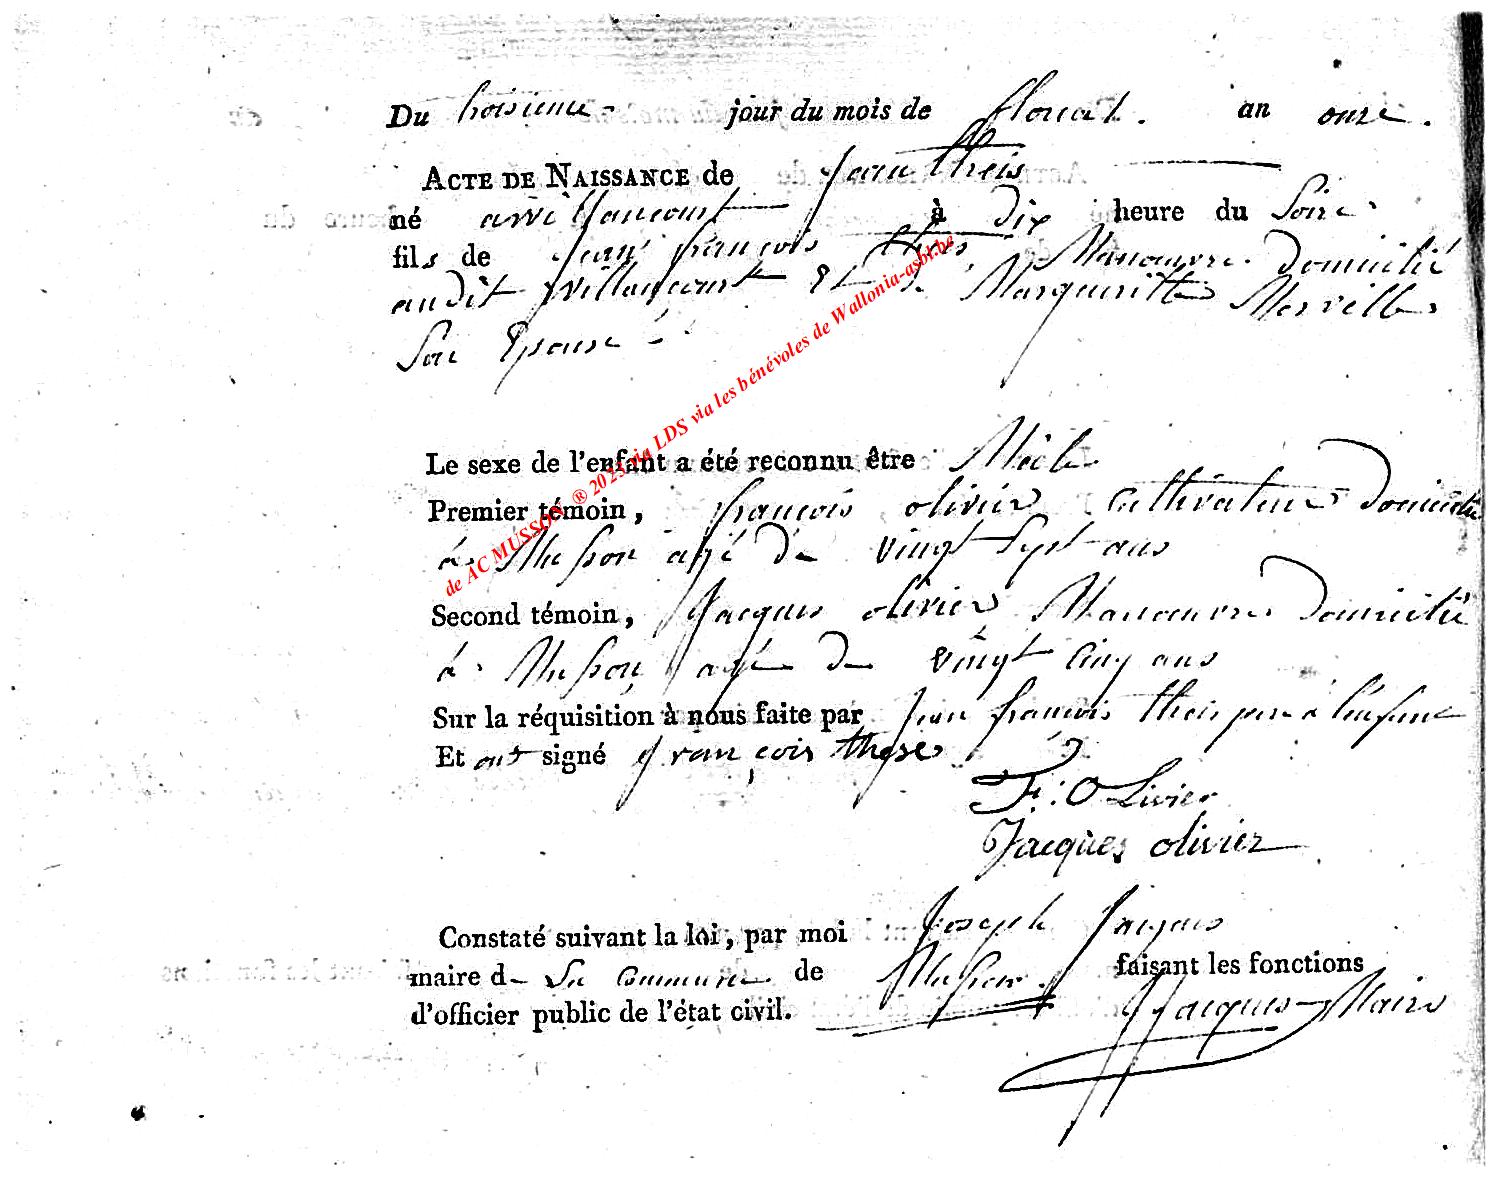 Du troisieme jour du mois de floreal. an onze.
ACTE DE NAISSANCE de Jean theis
né a Willancourt à dix heure du Soire
fils de Jean françois theis, Manoeuvre Domicilié
audit Willancourt Et de Margueritte Merville
Son Epouse
Le sexe de l'enfant a été reconnu être Mâle
Premier témoin, françois olivier Cultivateur Domicilié
à Musson agé De vingt Sept ans
Second témoin, Jacques olivier Manoeuvre Domicilié
à Musson agé De vingt Cinq ans
Sur la réquisition à nous faite par Jean françois theis pere a l'enfant
Et ont signé françois these
F: Olivier
Jacques olivier
Constaté suivant la loi, par moi Joseph Jacques
maire d La Commune de Musson faisant les fonctions
d'officier public de l'état civil. J Jacques Maire
de AC MUSSON ® 2023 via LDS via les bénévoles de Wallonia-asbl.be